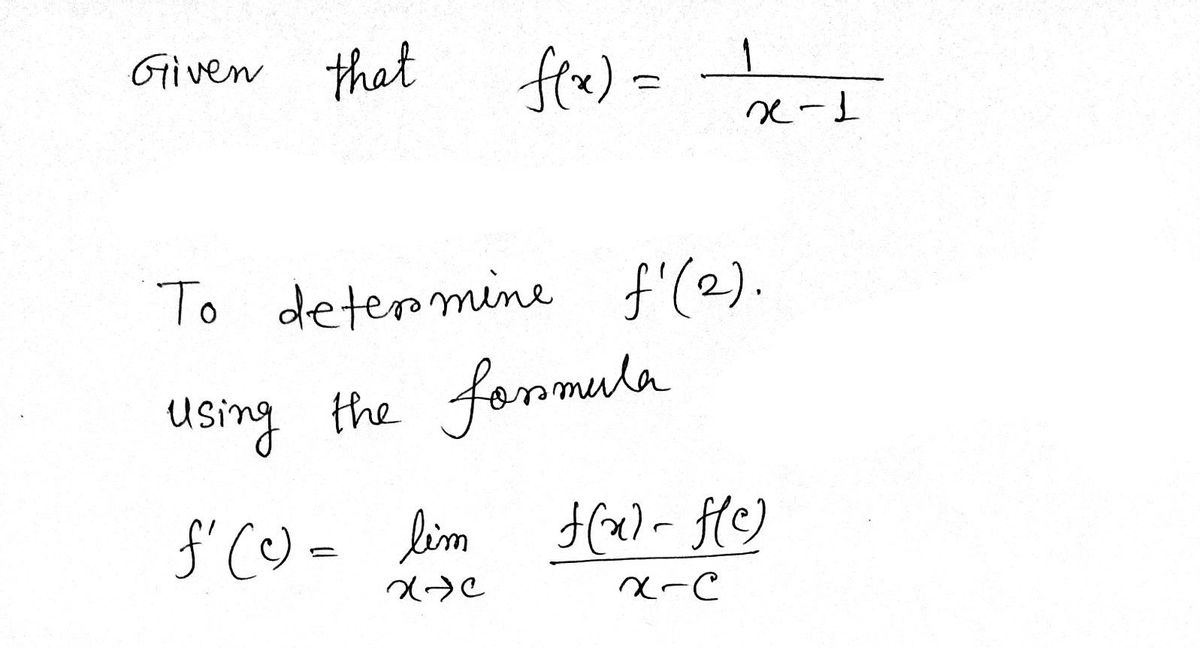 Given that f(x) = 1/(x-1)
To determine f'(2).
using the formula
f'(c) = lim x→c (f(x) - f(c))/(x-c)